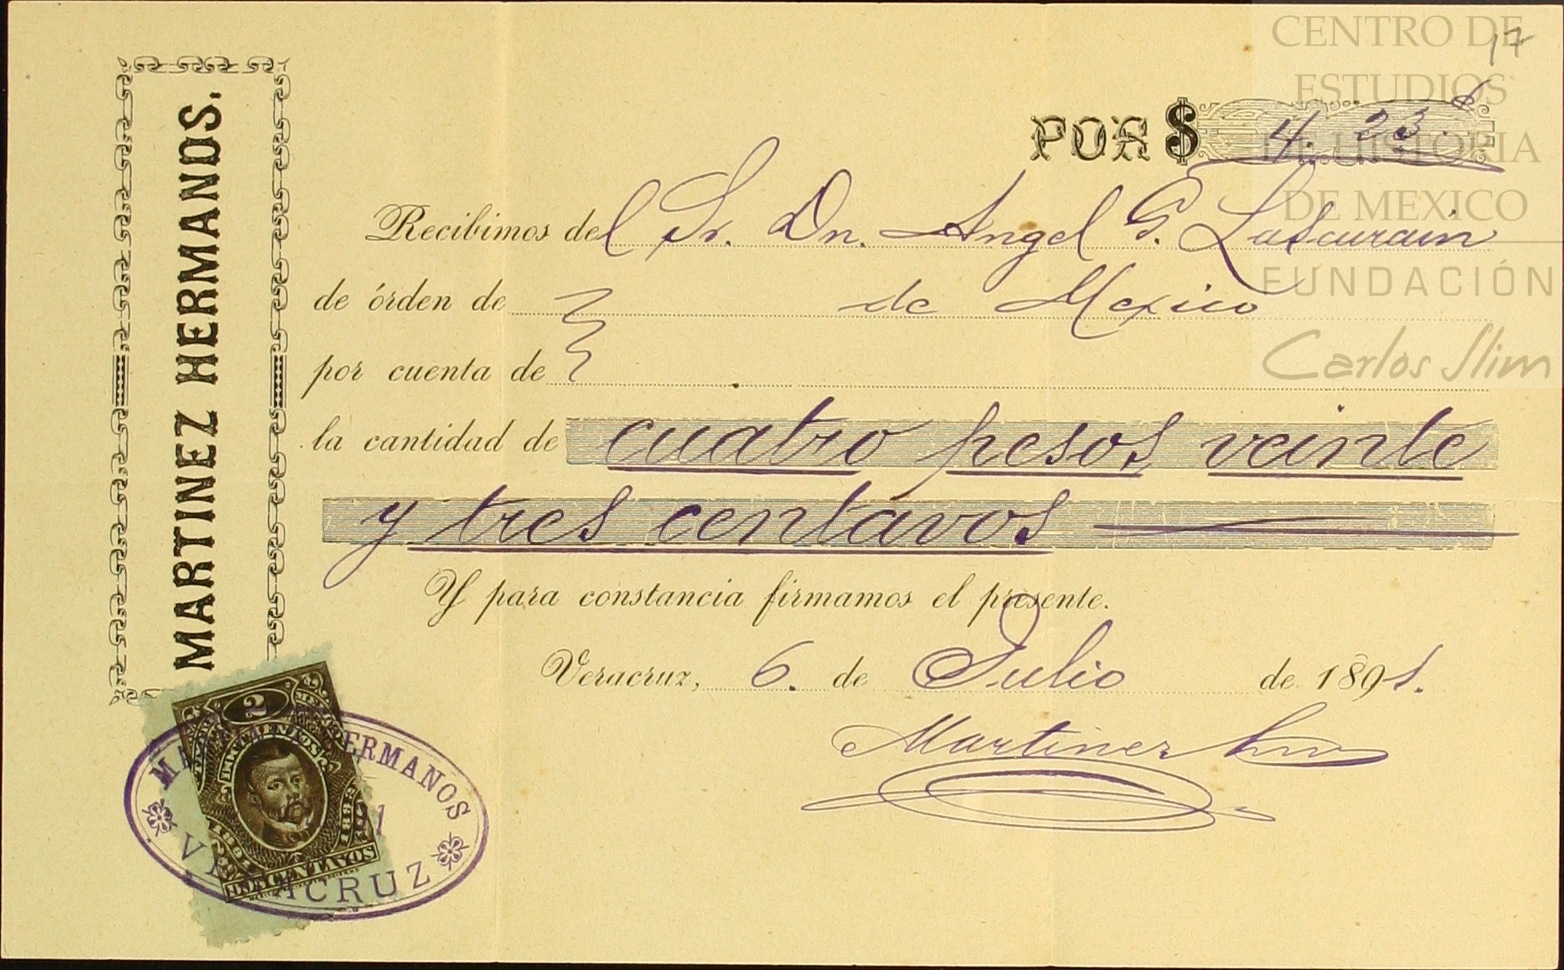 CENTRO DE
ESTUDIOS
DE HISTORIA
DE MEXICO
FUNDACIÓN
Carlos Slim
17
MARTINEZ HERMANOS.
POR $ 4. 23.
Recibimos del Sr. Dn. Angel G. Lascurain
de órden de de Mexico
por cuenta de
la cantidad de cuatro pesos veinte
y tres centavos
Y para constancia firmamos el presente.
Veracruz, 6. de Julio de 1891.
Martinez Hnos
2
DOCUMENTOS
1891 1892
DOS CENTAVOS
MARTINEZ HERMANOS
VERACRUZ